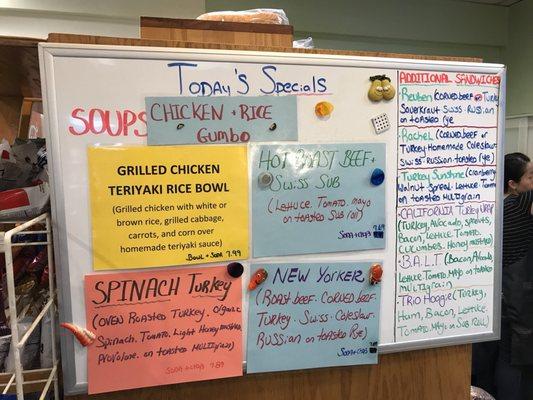 Today's Specials
SOUPS
CHICKEN + RICE
GUMBO
GRILLED CHICKEN
TERIYAKI RICE BOWL
(Grilled chicken with white or
brown rice, grilled cabbage,
carrots, and corn over
homemade teriyaki sauce)
BOWL + SODA 7.99
HOT ROAST BEEF +
SWISS SUB
(LETTUCE. TOMATO. MAYO
ON TOASTED SUB roll)
SODA + CHIPS
SPINACH TURKEY
(OVEN ROASTED TURKEY. ORGANIC
SPINACH. TOMATO. LIGHT HONEY MUSTARD
PROVOLONE. ON TOASTED MULTIGRAIN)
SODA + CHIPS 7.89
NEW YORKER
(ROAST BEEF. CORNED BEEF.
TURKEY. SWISS. COLESLAW.
RUSSIAN ON TOASTED RYE)
SODA + CHIPS
ADDITIONAL SANDWICHES
Reuben (CORNED BEEF OR TURKEY
SAUERKRAUT SWISS RUSSIAN
ON TOASTED RYE)
Rachel (CORNED BEEF OR
TURKEY HOMEMADE COLESLAW.
SWISS-RUSSIAN TOASTED RYE)
TURKEY SUNSHINE (CRANBERRY
WALNUT SPREAD. LETTUCE. TOMATO
ON TOASTED MULTIGRAIN)
CALIFORNIA TURKEY WRAP
(TURKEY, AVOCADO, SPROUTS,
BACON, LETTUCE TOMATO
CUCUMBERS. HONEY MUSTARD)
B.A.L.T (BACON, AVOCADO,
LETTUCE. TOMATO. MAYO ON TOASTED
MULTIGRAIN)
TRIO HOAGIE (TURKEY,
HAM, BACON, LETTUCE.
TOMATO. MAYO ON SUB ROLL)